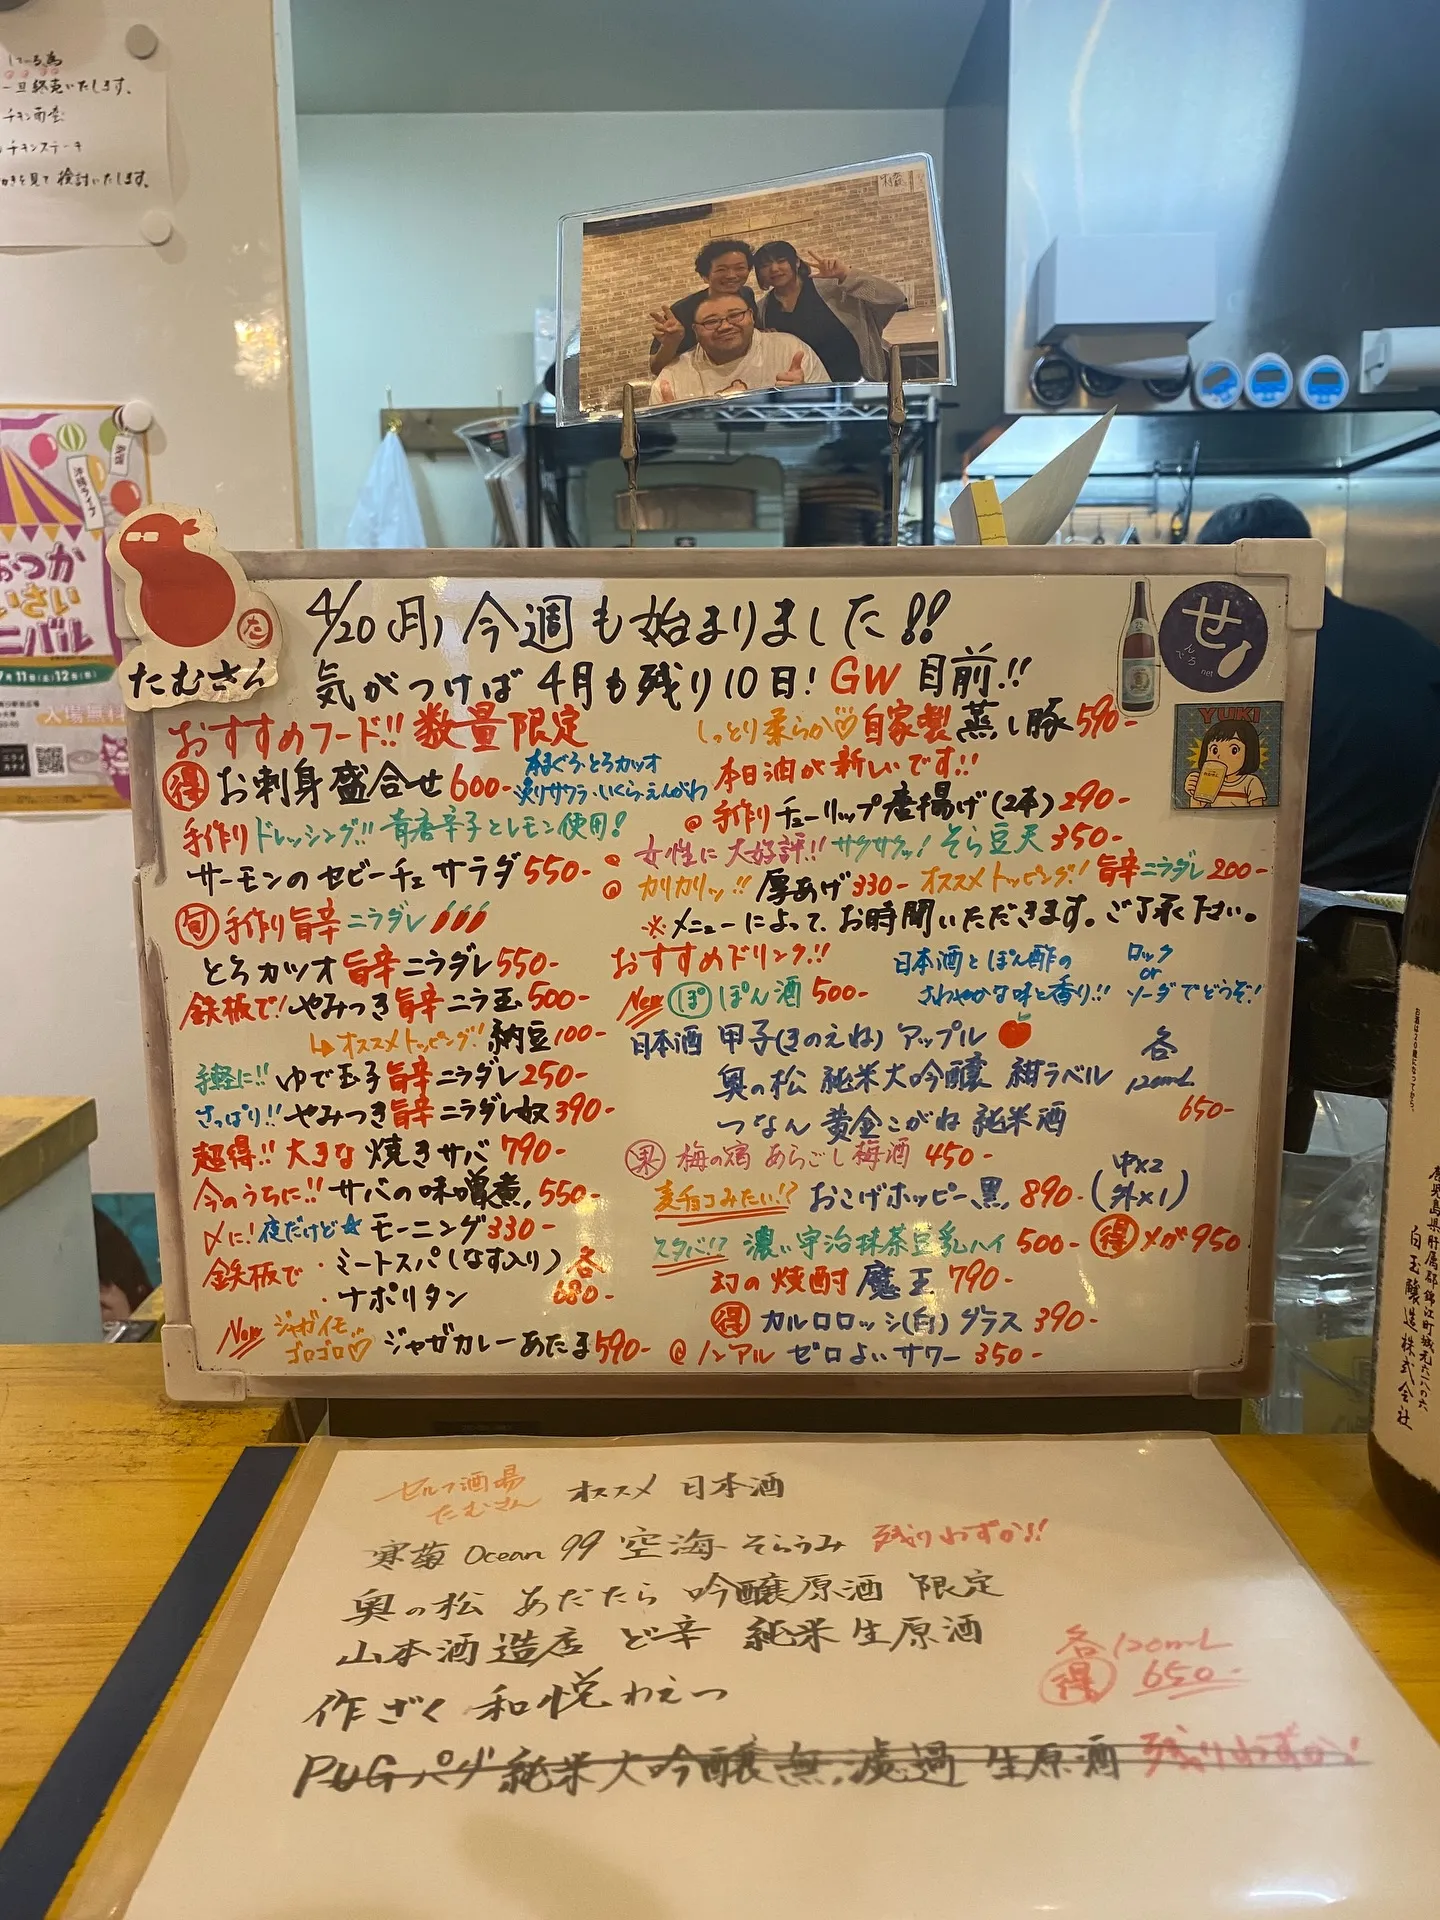 している為
一旦終売いたします。
チキン南蛮
チキンステーキ
を見て検討いたします。
沖縄ライブ
おつか
いさい
ニバル
7月11日(土)12日(日)
入場無料
たむさん
た
せ
でんろ
net
YUKI
4/20(月)今週も始まりました!!
気がつけば4月も残り10日!GW目前!!
おすすめフード!!数量限定
得 お刺身盛合せ600-
本まぐろ・とろカツオ
炙りサワラ・いくら・えんがわ
手作りドレッシング!!青唐辛子とレモン使用!
サーモンのセビーチェサラダ550-
旬 手作り旨辛ニラダレ
とろカツオ旨辛ニラダレ550-
鉄板で!やみつき旨辛ニラ玉500-
↳オススメトッピング!納豆100-
手軽に!!ゆで玉子旨辛ニラダレ250-
さっぱり!!やみつき旨辛ニラダレ奴390-
超得!!大きな焼きサバ790-
今のうちに!!サバの味噌煮550-
〆に!夜だけど☆モーニング330-
鉄板で・ミートスパ(なす入り)各
・ナポリタン 680-
New ジャガイモ
ゴロゴロ♡ジャガカレーあたま590-
しっとり柔らか♡自家製蒸し豚590-
本日油が新しいです!!
@手作りチューリップ唐揚げ(2本)290-
女性に大好評!!サクサクッ!そら豆天350-
@カリカリッ!!厚あげ330-オススメトッピング!旨辛ニラダレ200-
※メニューによって、お時間いただきます。ご了承下さい。
おすすめドリンク!!
New ぽ ぽん酒500-
日本酒とぽん酢の
さわやかな味と香り!!
ロック
or
ソーダでどうぞ!
日本酒 甲子(きのえね)アップル
奥の松 純米大吟醸 紺ラベル
つなん 黄金こがね 純米酒
各
120mL
650-
果 梅の宿 あらごし梅酒450-
麦チョコみたい!?おこげホッピー黒890-(中×2
外×1)
スタバ!?濃い宇治抹茶豆乳ハイ500- 得メガ950
幻の焼酎 魔王790-
得 カルロロッシ(白)グラス390-
@ノンアル ゼロよいサワー350-
セルフ酒場
たむさん
オススメ 日本酒
寒菊 Ocean 99 空海 そらうみ 残りわずか!!
奥の松 あだたら 吟醸原酒 限定
山本酒造店 ど辛 純米生原酒
作 ざく 和悦わえつ
各120mL
得 650-
PUGパグ 純米大吟醸無濾過 生原酒 残りわずか!
お酒は20歳になってから。
鹿児島県肝属郡錦江町城元六一八の六
白玉醸造株式会社